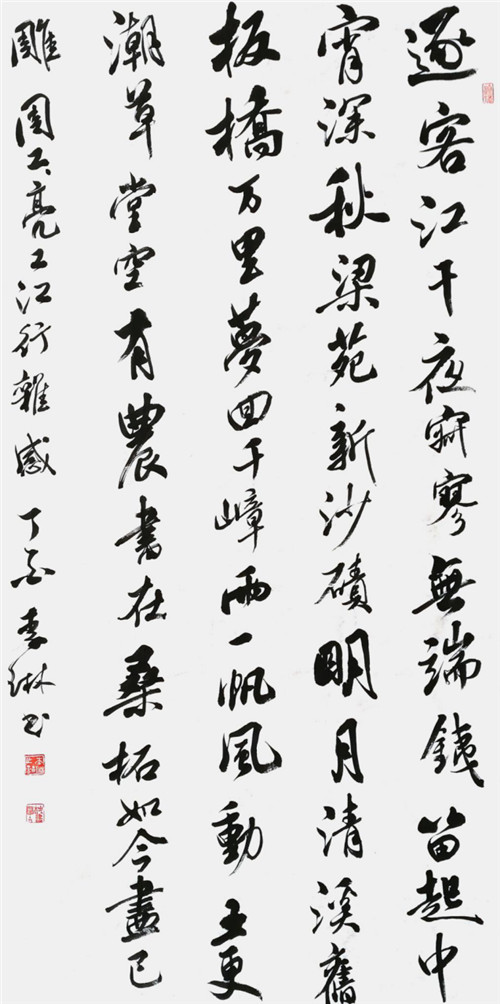 逐客江干夜寂寥無端鐵笛起中
宵深秋梁苑新沙磧明月清溪舊
板橋万里夢回千嶂雨一帆風動五更
潮草堂空有農書在桑柘如今盡已
雕 周亮工江行雜感 丁酉 李琳书